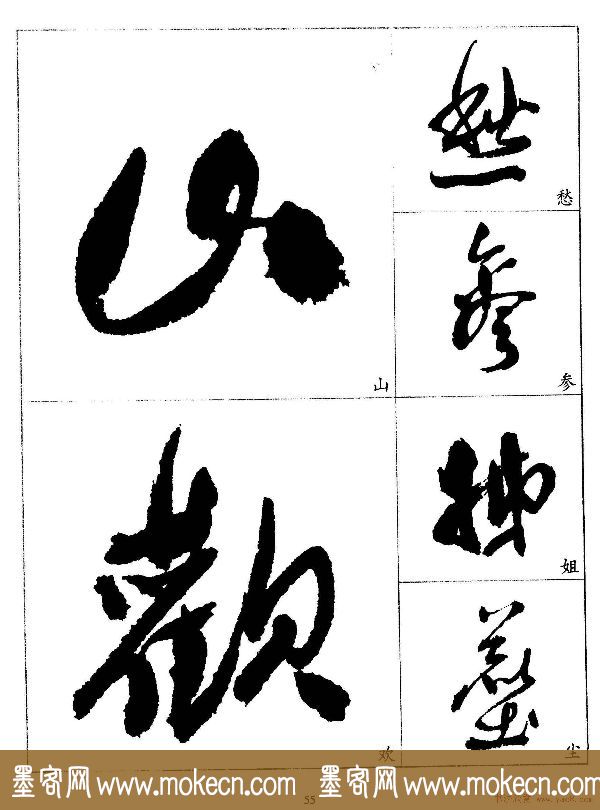 山
山
愁
愁
參
参
欢
姐
塵
尘
墨客网 www.mokecn.com 墨客网 www.mokecn.com
55